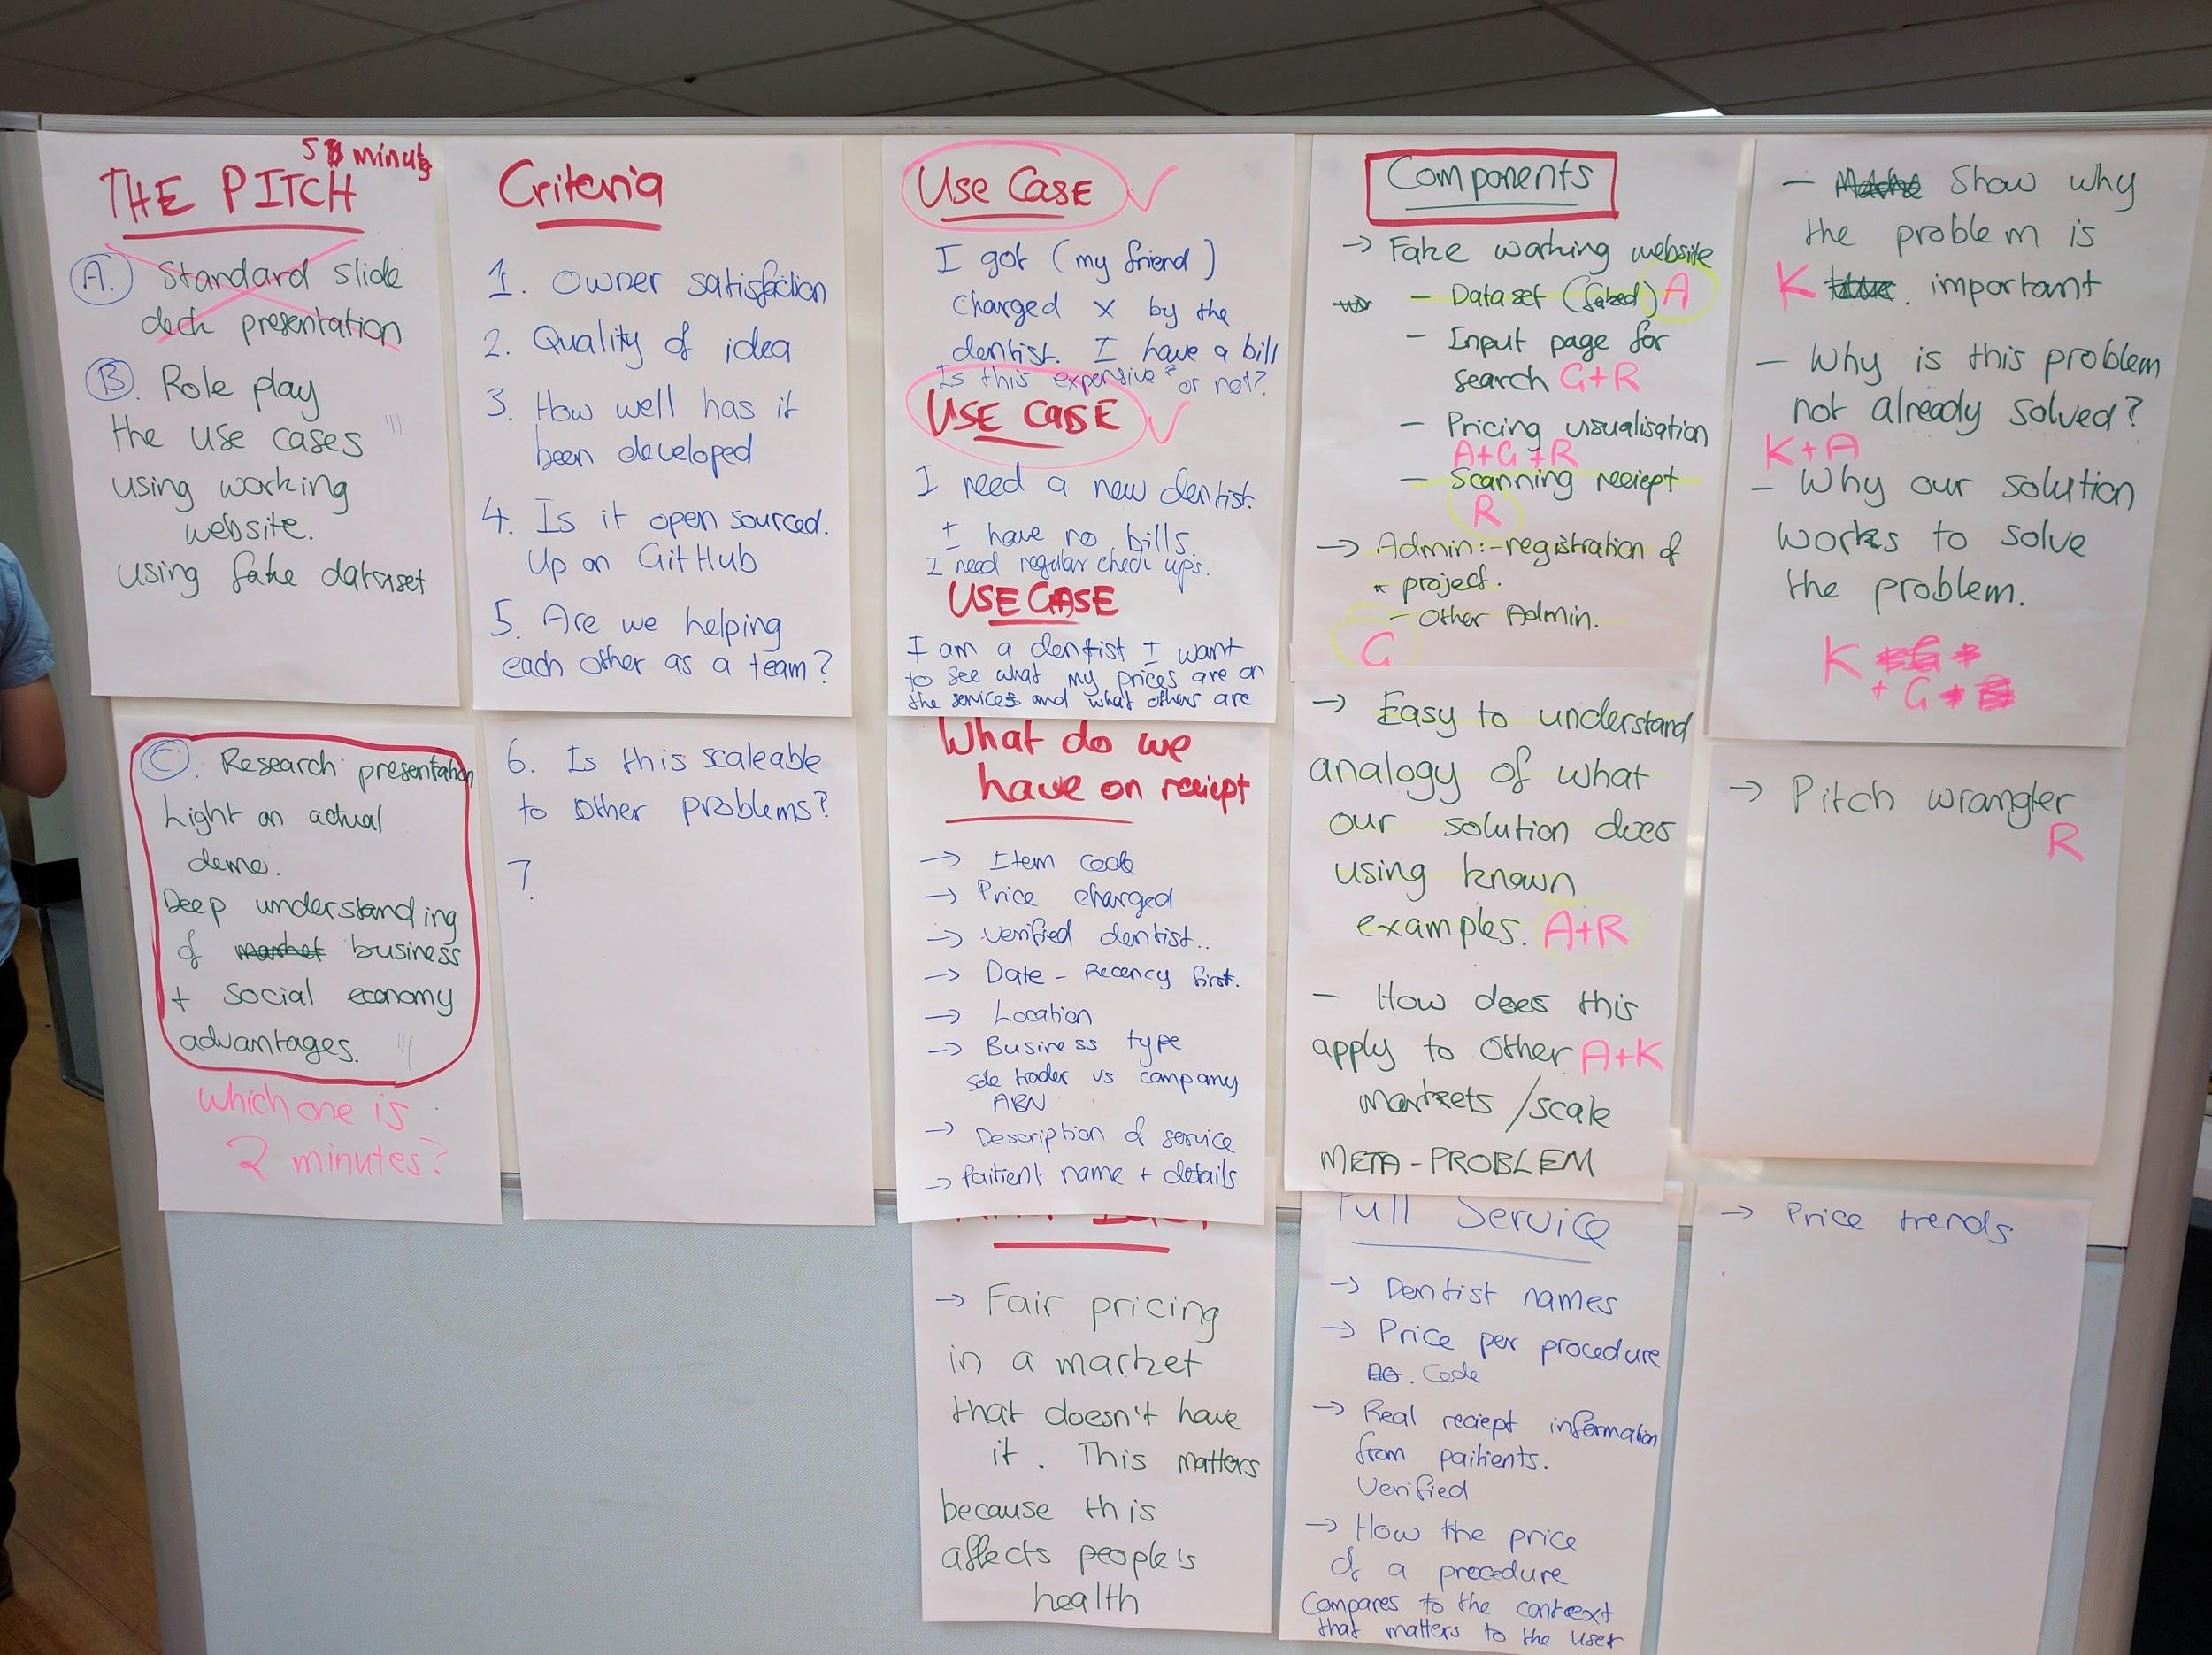 THE PITCH
5 minuts
A. Standard slide
deck presentation
B. Role play
the use cases
using working
website.
using fake dataset
C. Research presentation
Light on actual
demo.
Deep understanding
of market business
+ social economy
advantages.
which one is
2 minutes?
Criteria
1. Owner satisfaction
2. Quality of idea
3. How well has it
been developed
4. Is it open sourced.
Up on GitHub
5. Are we helping
each other as a team?
6. Is this scaleable
to other problems?
7.
Use Case
I got (my friend)
charged x by the
dentist. I have a bill
Is this expensive or not?
USE CASE
I need a new dentist.
I have no bills.
I need regular check ups.
USE CASE
I am a dentist I want
to see what my prices are on
the services and what others are
What do we
have on reciept
→ Item code
→ Price charged
→ Verified dentist..
→ Date - Recency first.
→ Location
→ Business type
sole trader vs company
ABN
→ Description of service
→ Paitient name + details
→ Fair pricing
in a market
that doesn't have
it. This matters
because this
affects people's
health
Components
→ Fake working website
- Dataset (faked) A
- Input page for
search G+R
- Pricing visualisation
A+G+R
- Scanning reciept
R
→ Admin:- registration of
project.
- Other Admin.
G
→ Easy to understand
analogy of what
our solution does
using known
examples. A+R
- How does this
apply to other A+K
markets /scale
META-PROBLEM
Full Service
→ Dentist names
→ Price per procedure
Code
→ Real reciept information
from paitients.
Verified
→ How the price
of a procedure
Compares to the context
that matters to the user
- Show why
the problem is
K important
- Why is this problem
not already solved?
K+A
- Why our solution
works to solve
the problem.
K
+ G +
→ Pitch wrangler
R
→ Price trends